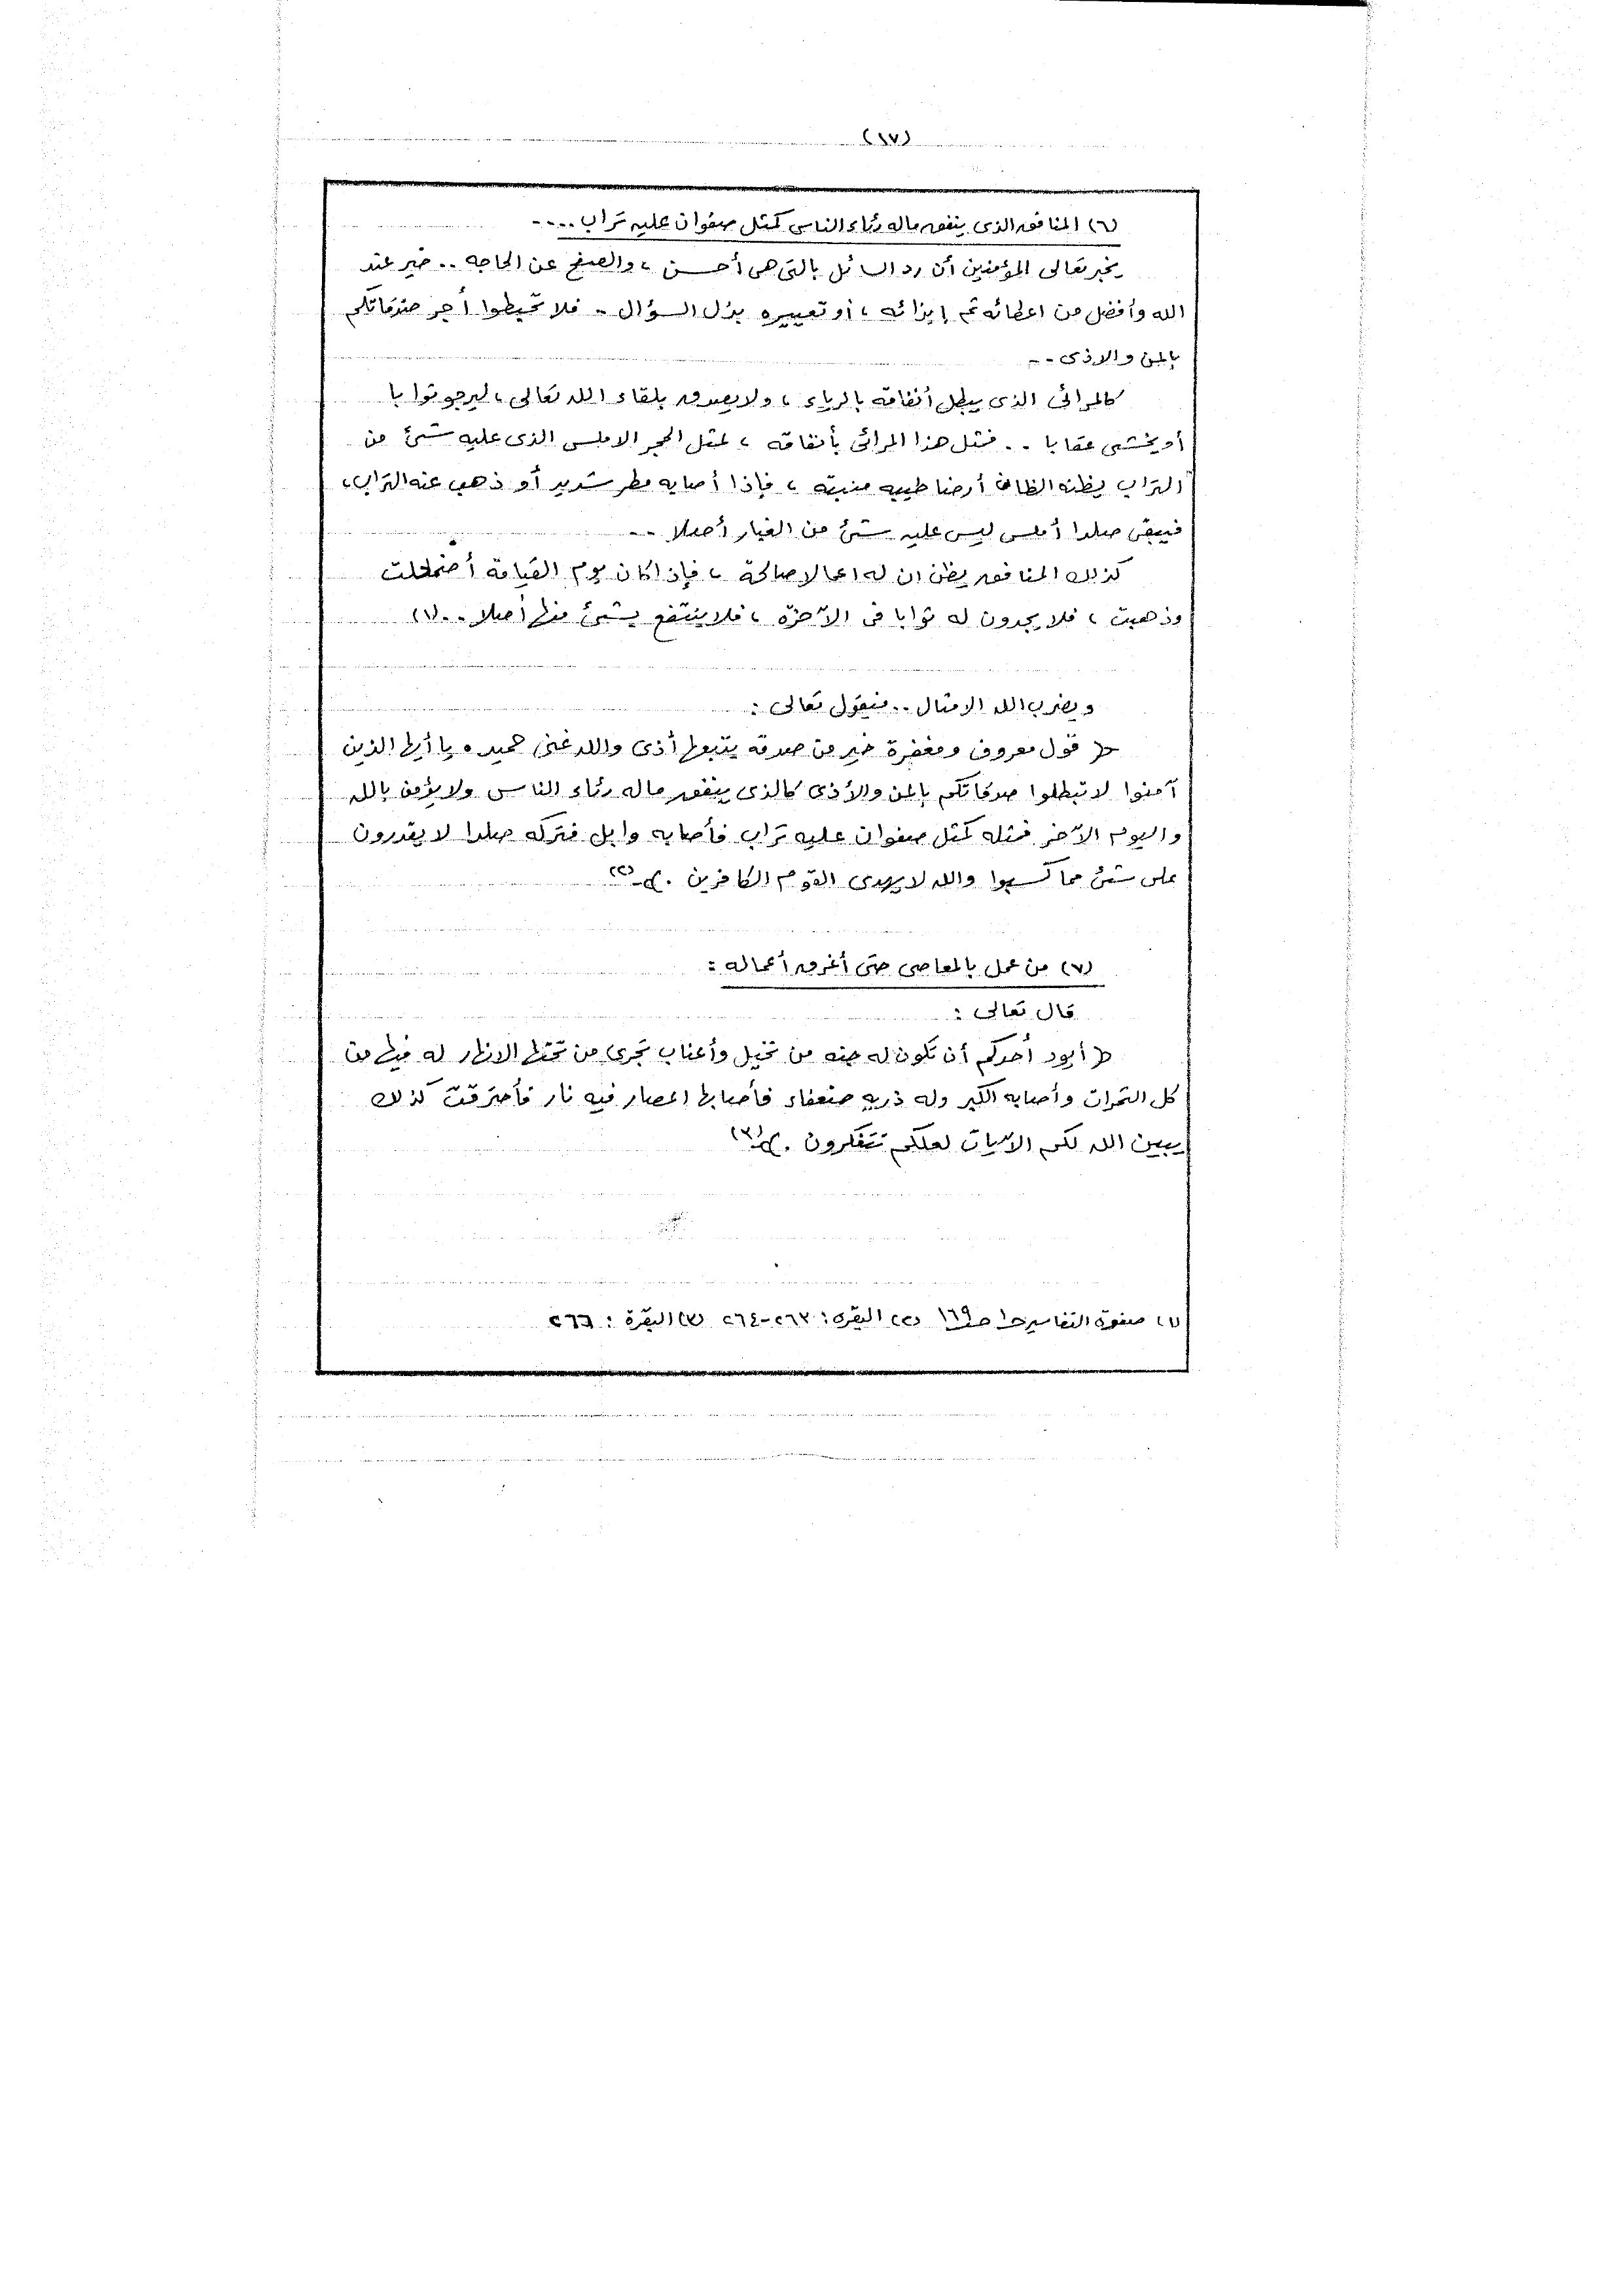 (١٧)
(٦) المنافق الذى ينفق ماله رئاء الناس كمثل صفوان عليه تراب ....
يخبر تعالى المؤمنين أن رد السائل بالتى هى أحسن ، والصفح عن الحاجه .. خير عند
الله وأفضل من اعطائه ثم إيذائه ، أو تعييره بذل السؤال - فلا تحبطوا أجر صدقاتكم
بالمن والاذى --
كالمرائى الذى يبطل أنفاقه بالرياء ، ولا يصدق بلقاء الله تعالى ، ليرجو ثوابا
أو يخشى عقابا .. فمثل هذا المرائى بأنفاقه ، كمثل الحجر الاملس الذى عليه شئ من
التراب يظنه الظان أرضا طيبه منبته ، فإذا أصابه مطر شديد أو ذهب عنه التراب ،
فيبقى صلدا أملس ليس عليه شئ من الغبار أصلا --
كذلك المنافق يظن ان له اعمالا صالحة ، فإذا كان يوم القيامة أضمحلت
وذهبت ، فلا يجدون له ثوابا فى الآخرة ، فلا ينتفع بشئ منها أصلا .. (١)
ويضرب الله الامثال .. فيقول تعالى :
﴿ قول معروف ومغفرة خير من صدقه يتبعها أذى والله غنى حميد ٥ يا أيها الذين
آمنوا لا تبطلوا صدقاتكم بالمن والأذى كالذى ينفق ماله رئاء الناس ولا يؤمن بالله
واليوم الآخر فمثله كمثل صفوان عليه تراب فأصابه وابل فتركه صلدا لا يقدرون
على شئ مما كسبوا والله لا يهدى القوم الكافرين . ﴾ (٢)
(٧) من عمل بالمعاصى حتى أغرق أعماله :
قال تعالى :
﴿ أيود أحدكم أن تكون له جنه من نخيل وأعناب تجرى من تحتها الانهار له فيها من
كل الثمرات وأصابه الكبر وله ذرية ضعفاء فأصابها اعصار فيه نار فأحترقت كذلك
يبين الله لكم الآيات لعلكم تتفكرون . ﴾ (٣)
(١) صفوة التفاسير ح١ ص١٦٩ (٢) البقره : ٢٦٣-٢٦٤ (٣) البقرة : ٢٦٦